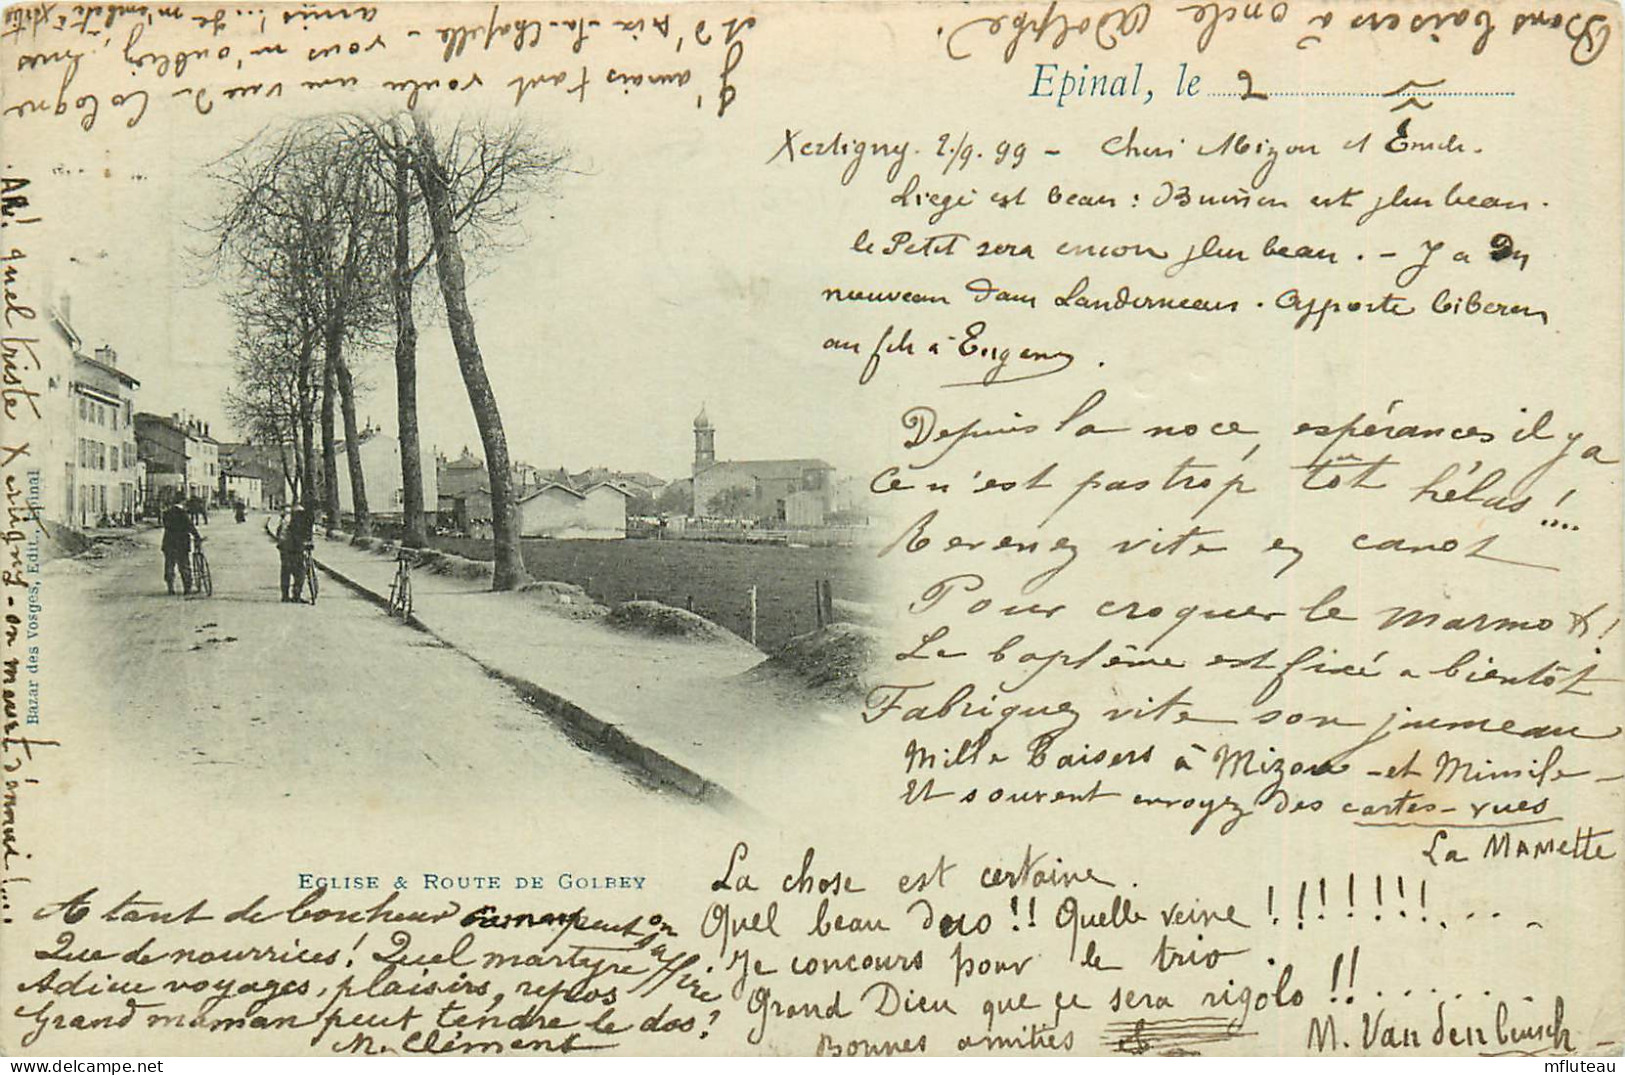 Bons baisers à oncle Adolphe.
J'aurais tant voulu une vue de Cologne
et d'Aix-la-Chapelle - vous m'oubliez, mes
amis!... Je m'embête à
Epinal, le 2
Xertigny. 2/9. 99 - Chers Mizou et Emile.
Liège est beau : Buisson est plus beau.
le Petit sera encore plus beau. - Y a du
nouveau dans Landerneau. Apporte biberon
au fils à Eugene.
Depuis la noce, espérances il y a
Ce n'est pas trop tôt hélas!....
Revenez vite en canot
Pour croquer le marmot!
Le baptême est fixé a bientôt
Fabriquez vite son jumeau
Mille baisers à Mizou - et Mimile -
Et souvent envoyez des cartes-vues
La Mamette
Ah! quel triste Xertigny - on meurt d'ennui!....
Bazar des Vosges, Edit., Epinal
EGLISE & ROUTE DE GOLBEY
A tant de bonheur peut on
Que de nourrices! Quel martyre
Adieu voyages, plaisirs, repos
Grand maman peut tendre le dos!
M. Clément
La chose est certaine.
Quel beau duo!! Quelle veine!!!!!!!....
Je concours pour le trio.
Grand Dieu que ce sera rigolo!!......
Bonnes amitiés
M. Vandenbusch -
https://www.delcampe.net
mfluteau